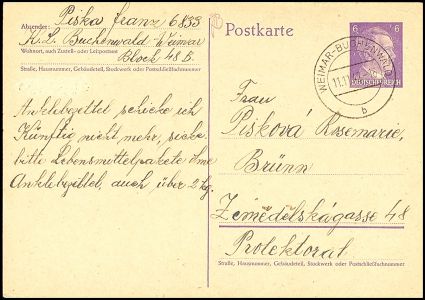 Absender: Piska Franz 6833
K. L. Buchenwald Weimar
Wohnort, auch Zustell- oder Leitpostamt
Block 48 B.
Straße, Hausnummer, Gebäudeteil, Stockwerk oder Postschließfachnummer
Anklebezittel schicke ich
Künftig nicht mehr, sicke
bitte Lebensmittelpakete ohne
Anklebezittel, auch über 2 kg.
Postkarte
6 6
DEUTSCHES REICH
WEIMAR-BUCHENWALD
b
Frau
Pisková Rosemarie,
Brünn
Zemědělskágasse 48
Protektorat
Straße, Hausnummer, Gebäudeteil, Stockwerk oder Postschließfachnummer